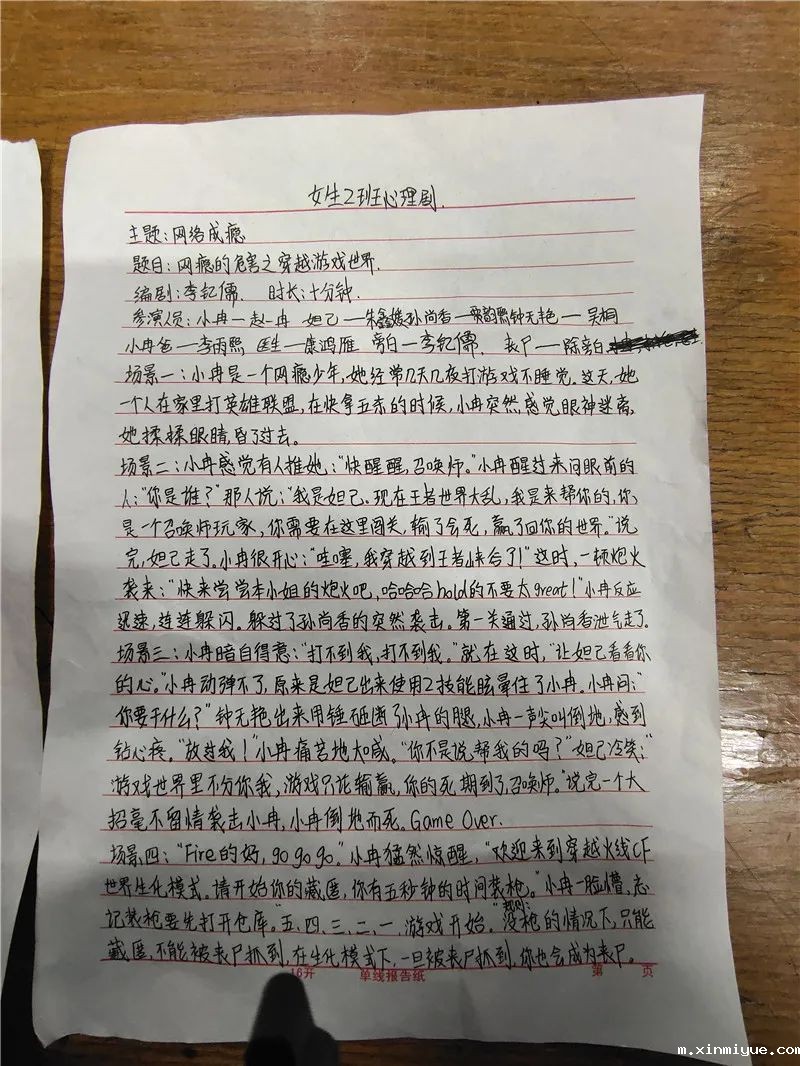 女生2班心理剧.
主题:网络成瘾
题目:网瘾的危害之穿越游戏世界.
编剧:李纪儒. 时长:十分钟.
参演人员:小冉一赵一冉 妲己一朱鑫媛孙尚香一 钟无艳一吴桐
小冉爸一李雨熙 医生一康鸿雁 旁白一李纪儒. 丧尸一除旁白
场景一:小冉是一个网瘾少年,她经常几天几夜打游戏不睡觉.这天,她
一个人在家里打英雄联盟,在快拿五杀的时候,小冉突然感觉眼神迷离,
她揉揉眼睛,昏了过去。
场景二:小冉感觉有人推她,:“快醒醒,召唤师。”小冉醒过来问眼前的
人:“你是谁?”那人说:“我是妲己.现在王者世界大乱,我是来帮你的.你
是一个召唤师玩家,你需要在这里闯关,输了会死,赢了回你的世界。”说
完,妲己走了.小冉很开心:“哇塞,我穿越到王者峡谷了!”这时,一顿炮火
袭来:“快来尝尝本小姐的炮火吧,哈哈哈hold的不要太great!”小冉反应
迅速,连连躲闪。躲过了孙尚香的突然袭击。第一关通过,孙尚香泄气走了.
场景三:小冉暗自得意:“打不到我,打不到我。”就在这时,“让妲己看看你
的心。”小冉动弹不了,原来是妲己出来使用2技能眩晕住了小冉.小冉问:“
你要干什么?”钟无艳出来用锤砸断了小冉的腿,小冉一声尖叫倒地,感到
钻心疼。“放过我!”小冉痛苦地大喊。“你不是说帮我的吗?”妲己冷笑:“
游戏世界里不分你我,游戏只论输赢,你的死期到了,召唤师。”说完一个大
招毫不留情袭击小冉,小冉倒地而死。Game Over.
场景四:“Fire的好,go go go。”小冉猛然惊醒,“欢迎来到穿越火线CF
世界生化模式.请开始你的藏匿,你有五秒钟的时间装枪。”小冉一脸懵,忘
记装枪要先打开仓库。“五、四、三、二、一,游戏开始。”规则:“没枪的情况下,只能
藏匿,不能被丧尸抓到,在生化模式下,一旦被丧尸抓到,你也会成为丧尸。
16开 单线报告纸 第 页
m.xinmiyue.com